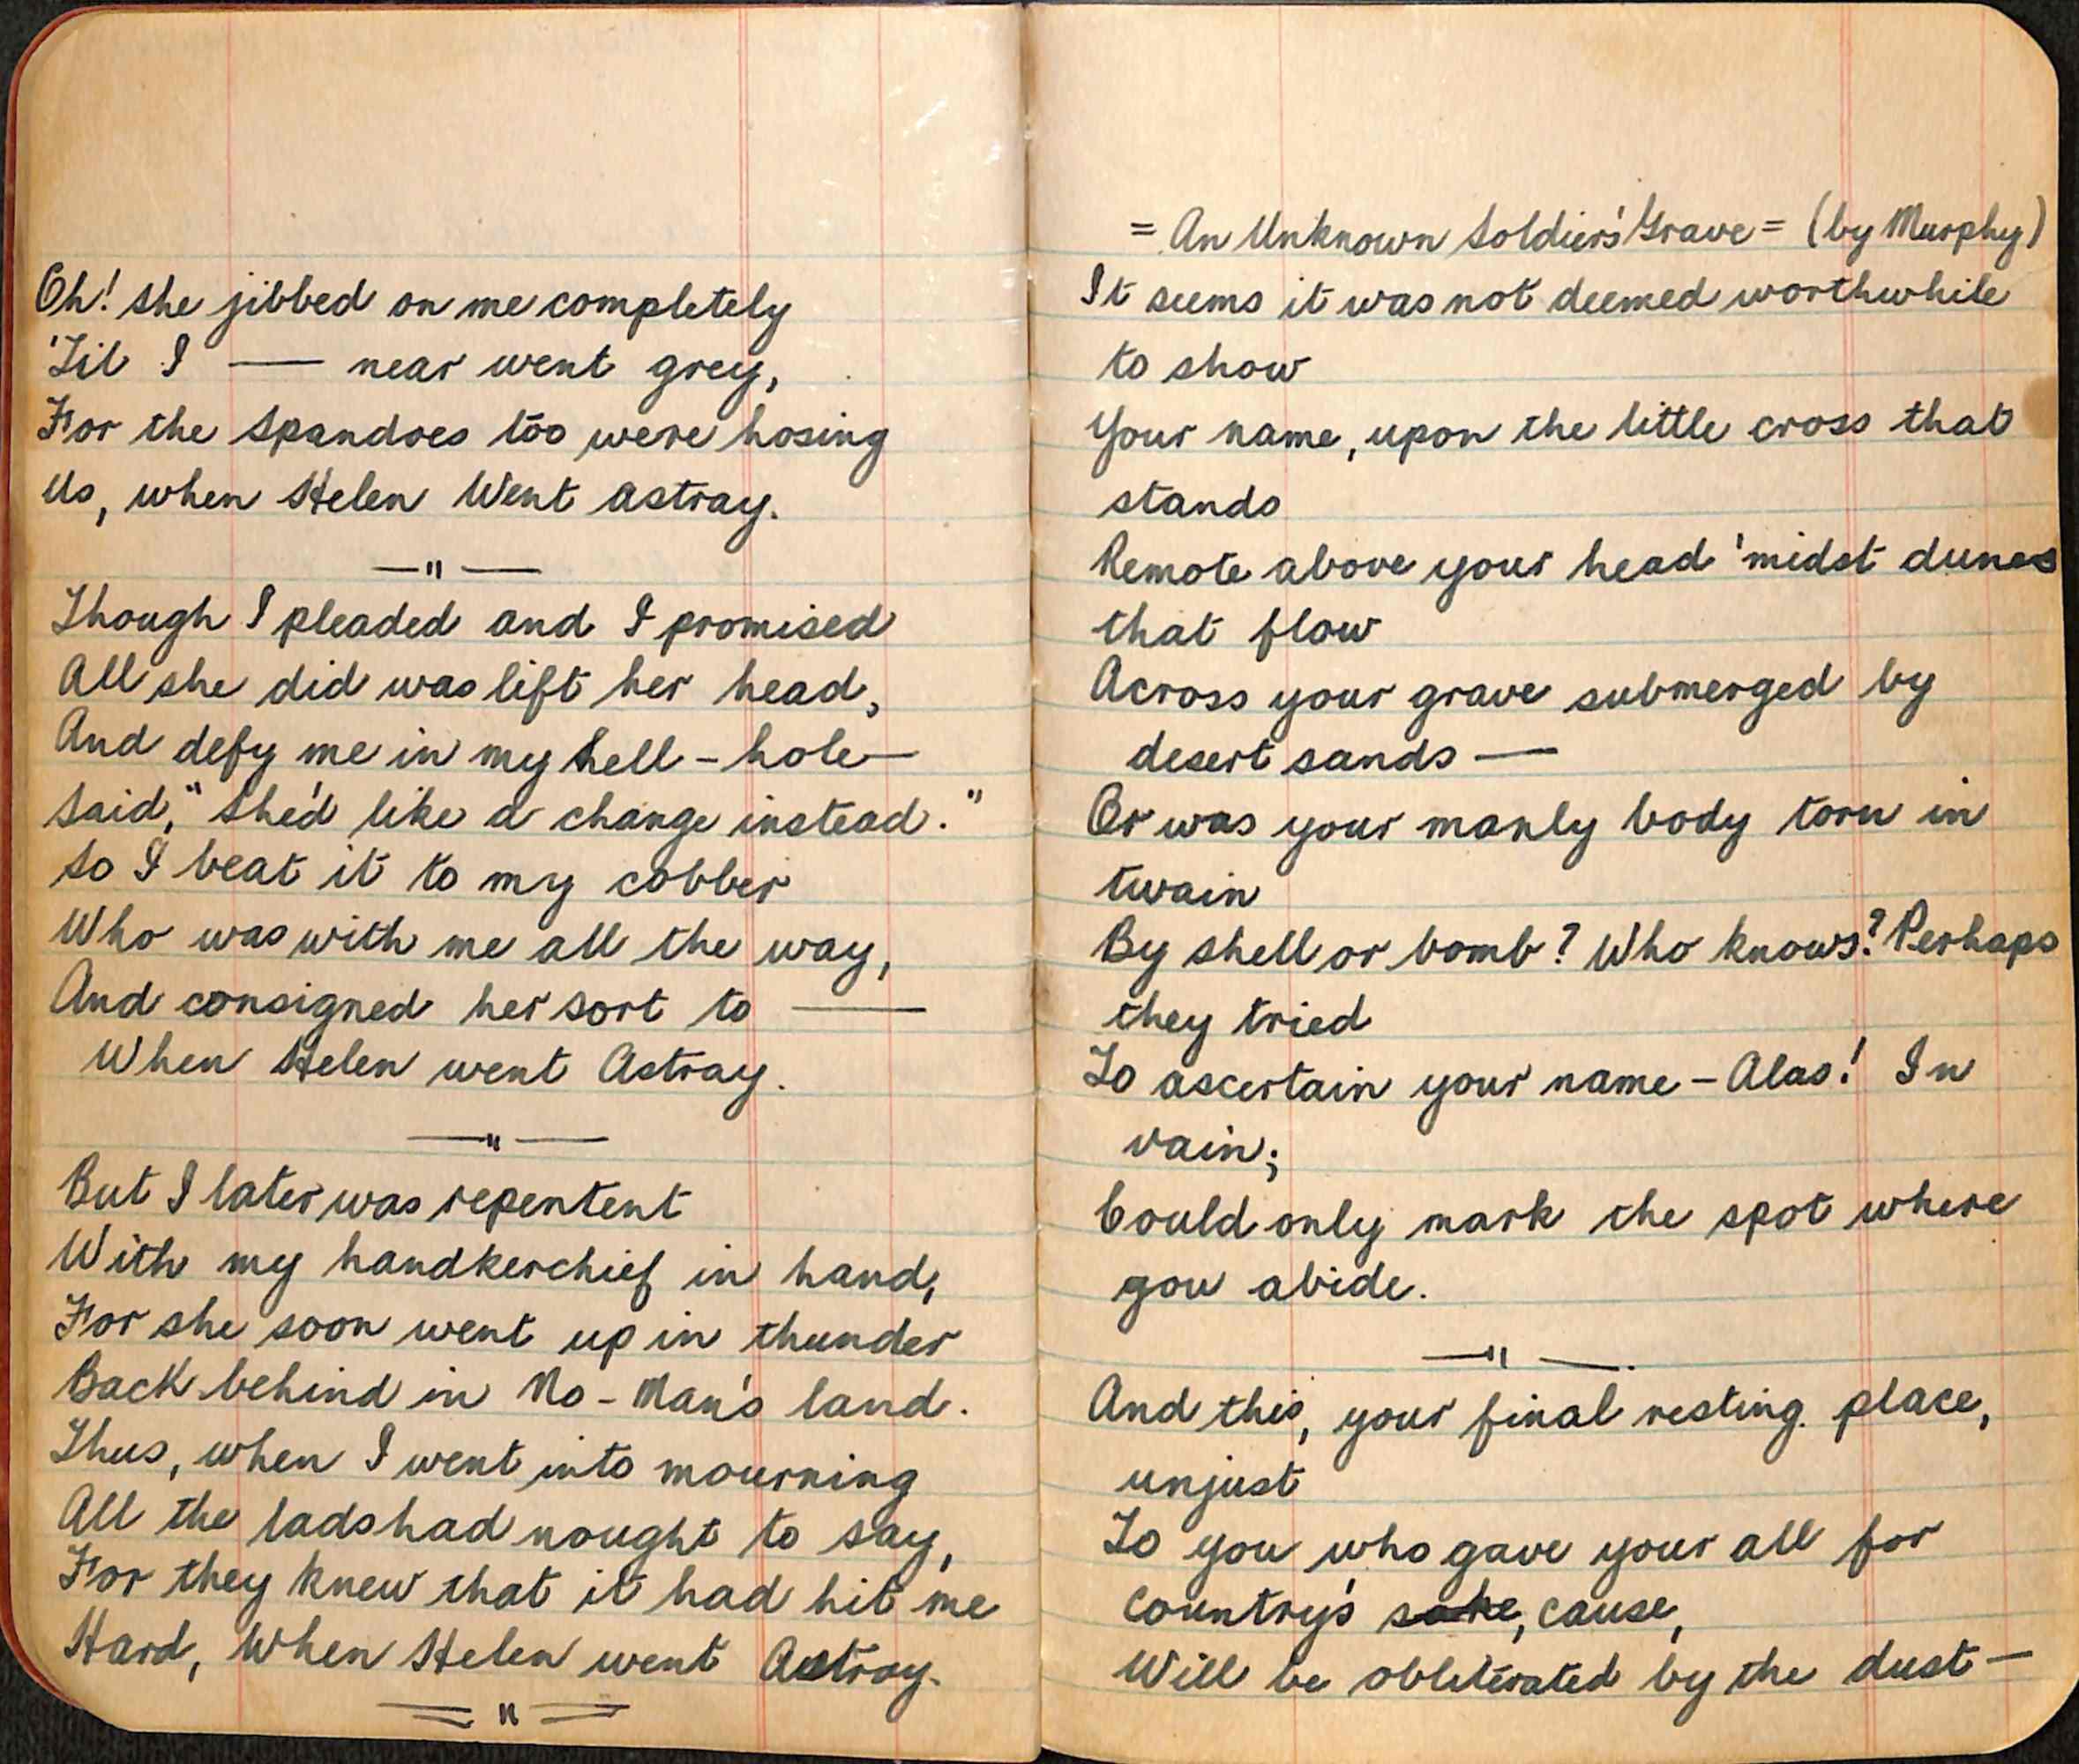 Oh! she jibbed on me completely
'Til I — near went grey,
For the Spandoes too were hosing
Us, when Helen Went astray.
— " —
Though I pleaded and I promised
All she did was lift her head,
And defy me in my hell-hole—
Said, "She'd like a change instead."
So I beat it to my cobber
Who was with me all the way,
And consigned her sort to —
When Helen went Astray.
— " —
But I later was repentent
With my handkerchief in hand,
For she soon went up in thunder
Back behind in No-Man's land.
Thus, when I went into mourning
All the lads had nought to say,
For they knew that it had hit me
Hard, When Helen went Astray.
= " =
= An Unknown Soldiers' Grave = (by Murphy)
It seems it was not deemed worthwhile
to show
Your name, upon the little cross that
stands
Remote above your head 'midst dunes
that flow
Across your grave submerged by
desert sands —
Or was your manly body torn in
twain
By shell or bomb? Who knows? Perhaps
they tried
To ascertain your name – Alas! In
vain;
Could only mark the spot where
you abide.
— " —
And this, your final resting place,
unjust
To you who gave your all for
Country's sake, cause,
Will be obliterated by the dust —